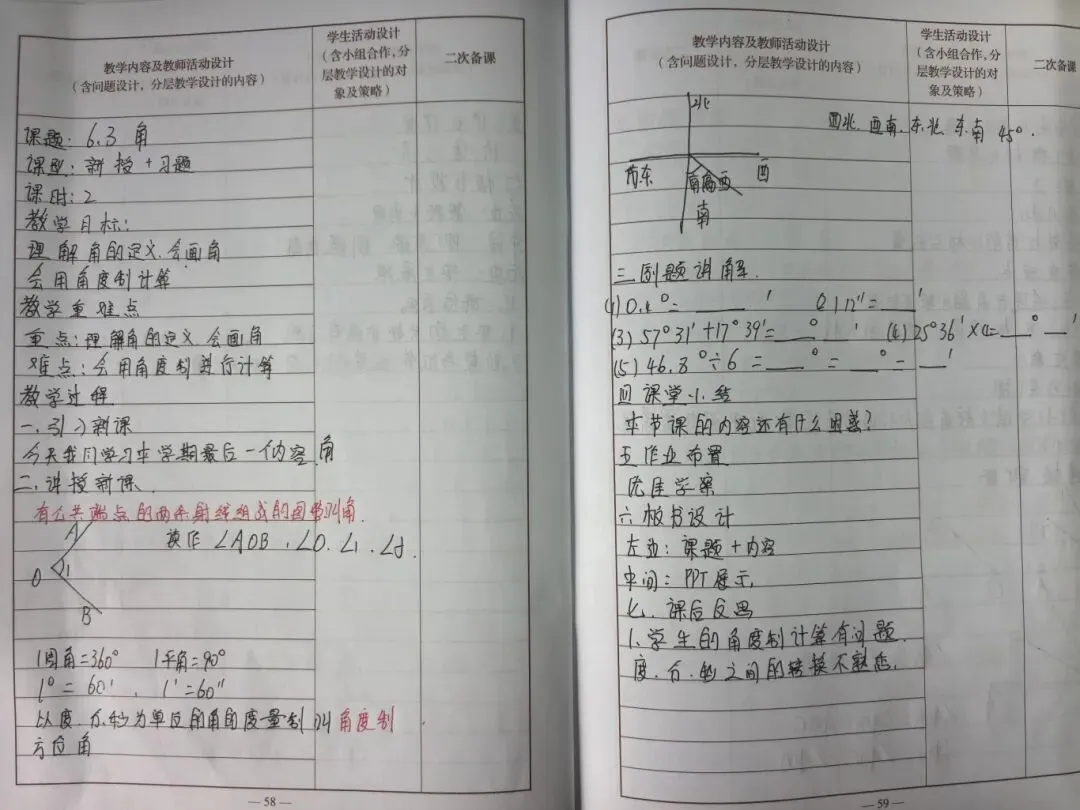 教学内容及教师活动设计
（含问题设计，分层教学设计的内容）
学生活动设计
（含小组合作，分
层教学设计的对
象及策略）
二次备课
课题：6.3 角
课型：新授+习题
课时：2
教学目标：
理解角的定义.会画角
会用角度制计算
教学重难点
重点：理解角的定义.会画角
难点：会用角度制进行计算
教学过程
一.引入新课
今天我们学习本学期最后一个内容.角
二.讲授新课.
有公共端点的两条射线组成的图形叫角.
A
O
1
B
∠AOB.∠O.∠1.
1周角=360° 1平角=90°
1°=60′, 1′=60″
以度.分.秒为单位的角的度量制叫角度制.
方位角
—58—
教学内容及教师活动设计
（含问题设计，分层教学设计的内容）
学生活动设计
（含小组合作，分
层教学设计的对
象及策略）
二次备课
北
西北.西南.东北.东南 45°.
东
南偏西
西
南
三.例题讲解.
(1) = ___ ′ = ___ ′
(3) 57°31′+17°39′=___° ___′ 25°36′×4=___° ___′
(5) 46.8°÷6=___°=___°___′
四 课堂小结
本节课的内容还有什么困惑?
五 作业布置
优佳学案
六 板书设计
左边：课题+内容
中间：PPT展示.
七.课后反思
1.学生的角度制计算有问题.
度.分.秒之间的转换不熟悉.
—59—